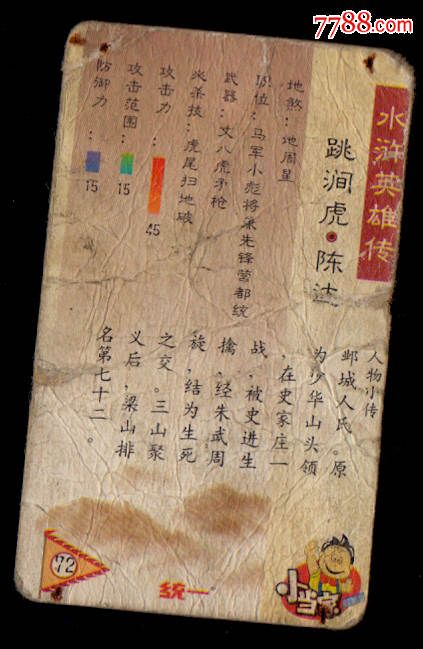 7788.com
水浒英雄传
跳涧虎·陈达
地煞：地周星
职位：马军小彪将兼先锋营都统
武器：丈八虎矛枪
必杀技：虎尾扫地破
攻击力：45
攻击范围：15
防御力：15
人物小传
邺城人氏。原
为少华山头领
，在史家庄一
战，被史进生
擒，经朱武周
旋，结为生死
之交。三山聚
义后，梁山排
名第七十二。
72
统一
小当家